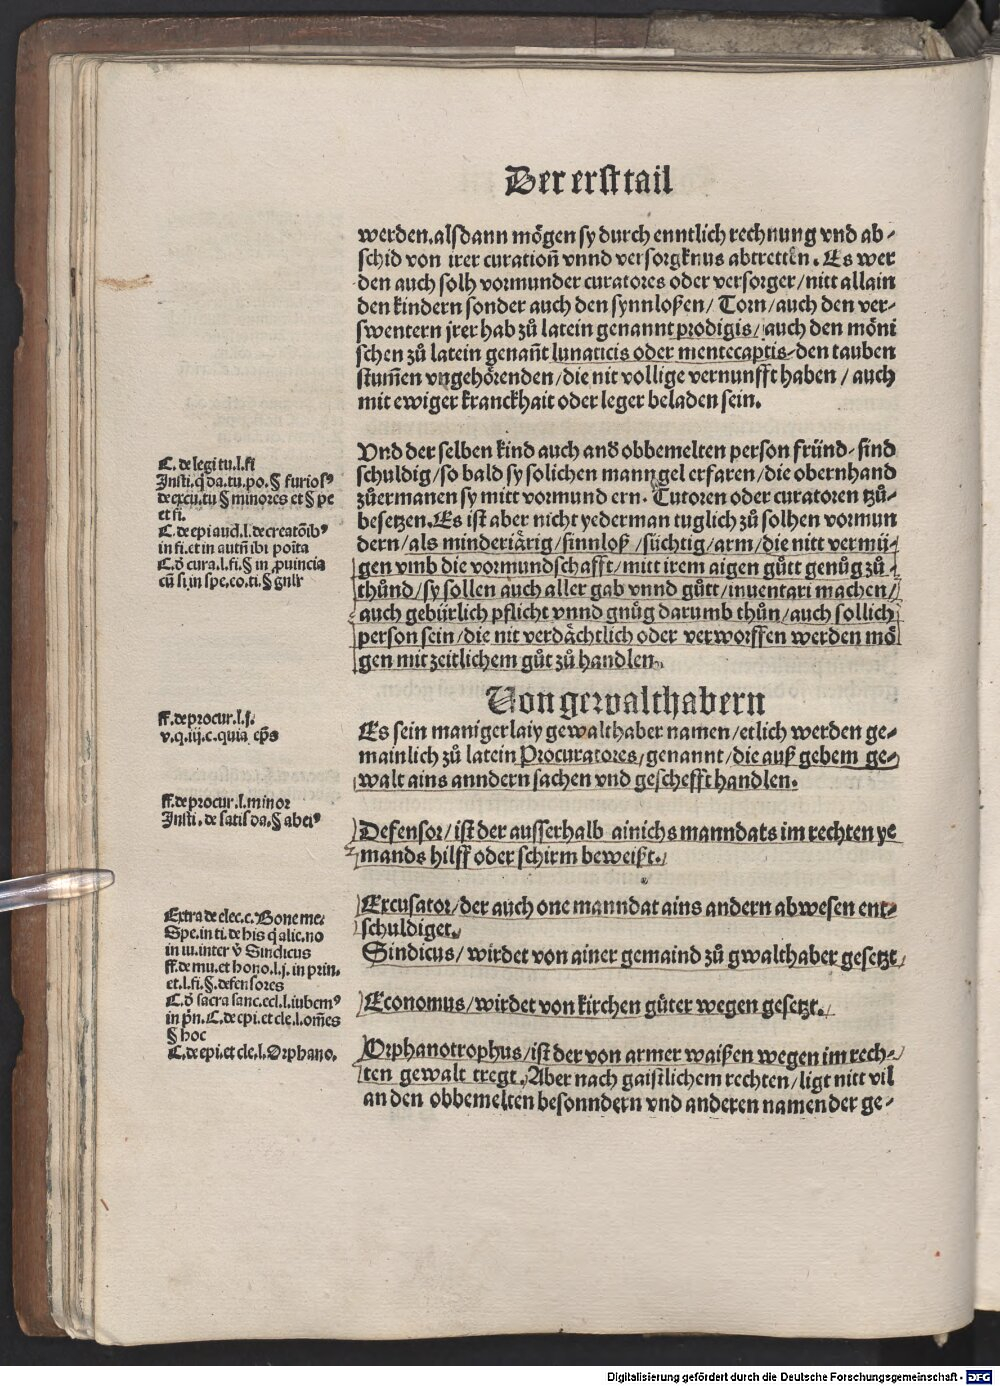 Der erst tail
werden.alsdann mögen sy durch enntlich rechnung vnd ab-
schid von irer curation̄ vnnd versorgknus abtretten. Es wer
den auch solh vormunder curatores oder versorger/nitt allain
den kindern sonder auch den synnloßen/ Torn/auch den ver-
swentern jrer hab zů latein genannt prodigis/auch den möni
schen zů latein genan̄t lunaticis oder mentecaptis-den tauben
stum̄en vngehörenden/die nit vollige vernunfft haben/ auch
mit ewiger kranckhait oder leger beladen sein.
Vnd der selben kind auch and̄ obbemelten person fründ-sind
schuldig/so bald sy solichen manngel erfaren/die obernhand
zůermanen sy mitt vormund ern. Tutoren oder curatoren tzů-
besetzen.Es ist aber nicht yederman tuglich zů solhen vormun
dern/als minderiärig/sinnloß/süchtig/arm/die nitt vermü-
gen vmb die vormundschafft/mitt irem aigen gůtt genůg zů-
thůnd/sy sollen auch aller gab vnnd gůtt/inuentari machen/
auch gebürlich pflicht vnnd gnůg darumb thůn/auch sollich
person sein/die nit verdächtlich oder verworffen werden mö
gen mit zeitlichem gůt zů handlen.
C. de legi tu.l.fi
Insti.q̄ da.tu.po.§ furiosꝰ
de excu.tu § minores et § pe
et fi.
C.de epi aud.l.decreatōibꝰ
in fi.et in auth̄ ibi posita
C.d̄ cura.l.fi.§ in ꝓuincia
cū si.in spe.co.ti.§ gn̄lr
Von gewalthabern
ff.de procur.l.j.
v.q.iij.c.quia ep̄s
Es sein manigerlaiy gewalthaber namen/etlich werden ge-
mainlich zů latein Procuratores/genannt/die auß gebem ge-
walt ains anndern sachen vnd geschefft handlen.
ff.de procur.l.minor
Insti.de satisda.§ abeiꝰ
Defensor/ist der ausserhalb ainichs manndats im rechten ye
mands hilff oder schirm beweißt.
Excusator/der auch one manndat ains andern abwesen ent-
schuldiget.
Sindicus/wirdet von ainer gemaind zů gwalthaber gesetzt
Economus/wirdet von kirchen gůter wegen gesetzt.
Orphanotrophus/ist der von armer waißen wegen im rech-
ten gewalt tregt.Aber nach gaistlichem rechten/ligt nitt vil
an den obbemelten besonndern vnd anderen namen der ge-
Extra de elec.c.Bone me.
Spe.in ti.de his q̄ alie.no
in iu.inter v̄ Sindicus
ff.de mu.et hono.l.j.in prin.
et.l.fi.§.defensores
C.d̄ sacra sanc.eccl.l.iubemꝰ
in p̄n.C.de epi.et cle.l.om̄es
§ hoc
C.de epi.et cle.l.Orphano.
Digitalisierung gefördert durch die Deutsche Forschungsgemeinschaft - DFG